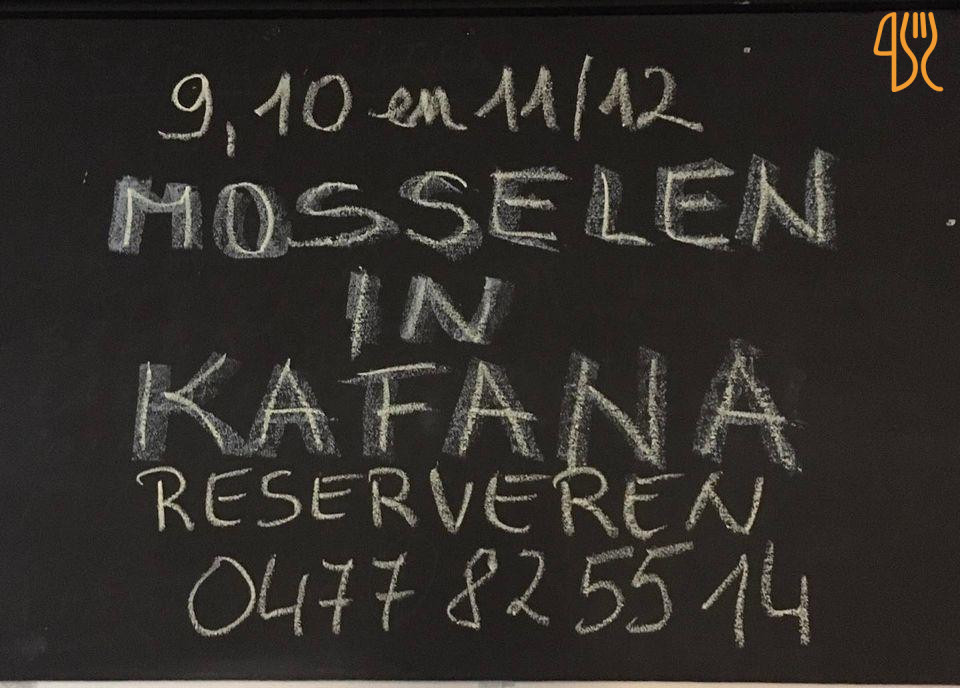 9, 10 en 11/12
MOSSELEN
IN
KAFANA
RESERVEREN
0477 82 55 14